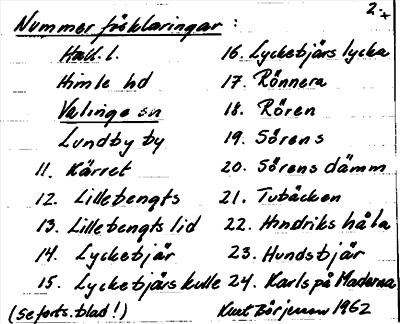 2.
Nummer förklaringar :
Hall. l.
Himle hd
Valinge sn
Lundby by
11. Kärret
12. Lillebengts
13. Lillebengts lid
14. Lyckebjär
15. Lyckebjärs kulle
(se forts. blad!)
16. Lyckebjärs lycka
17. Rönnera
18. Rören
19. Sörens
20. Sörens dämm
21. Tubäcken
22. Hindriks håla
23. Hundsbjär
24. Karls på Maderna
Kurt Börjesson 1962